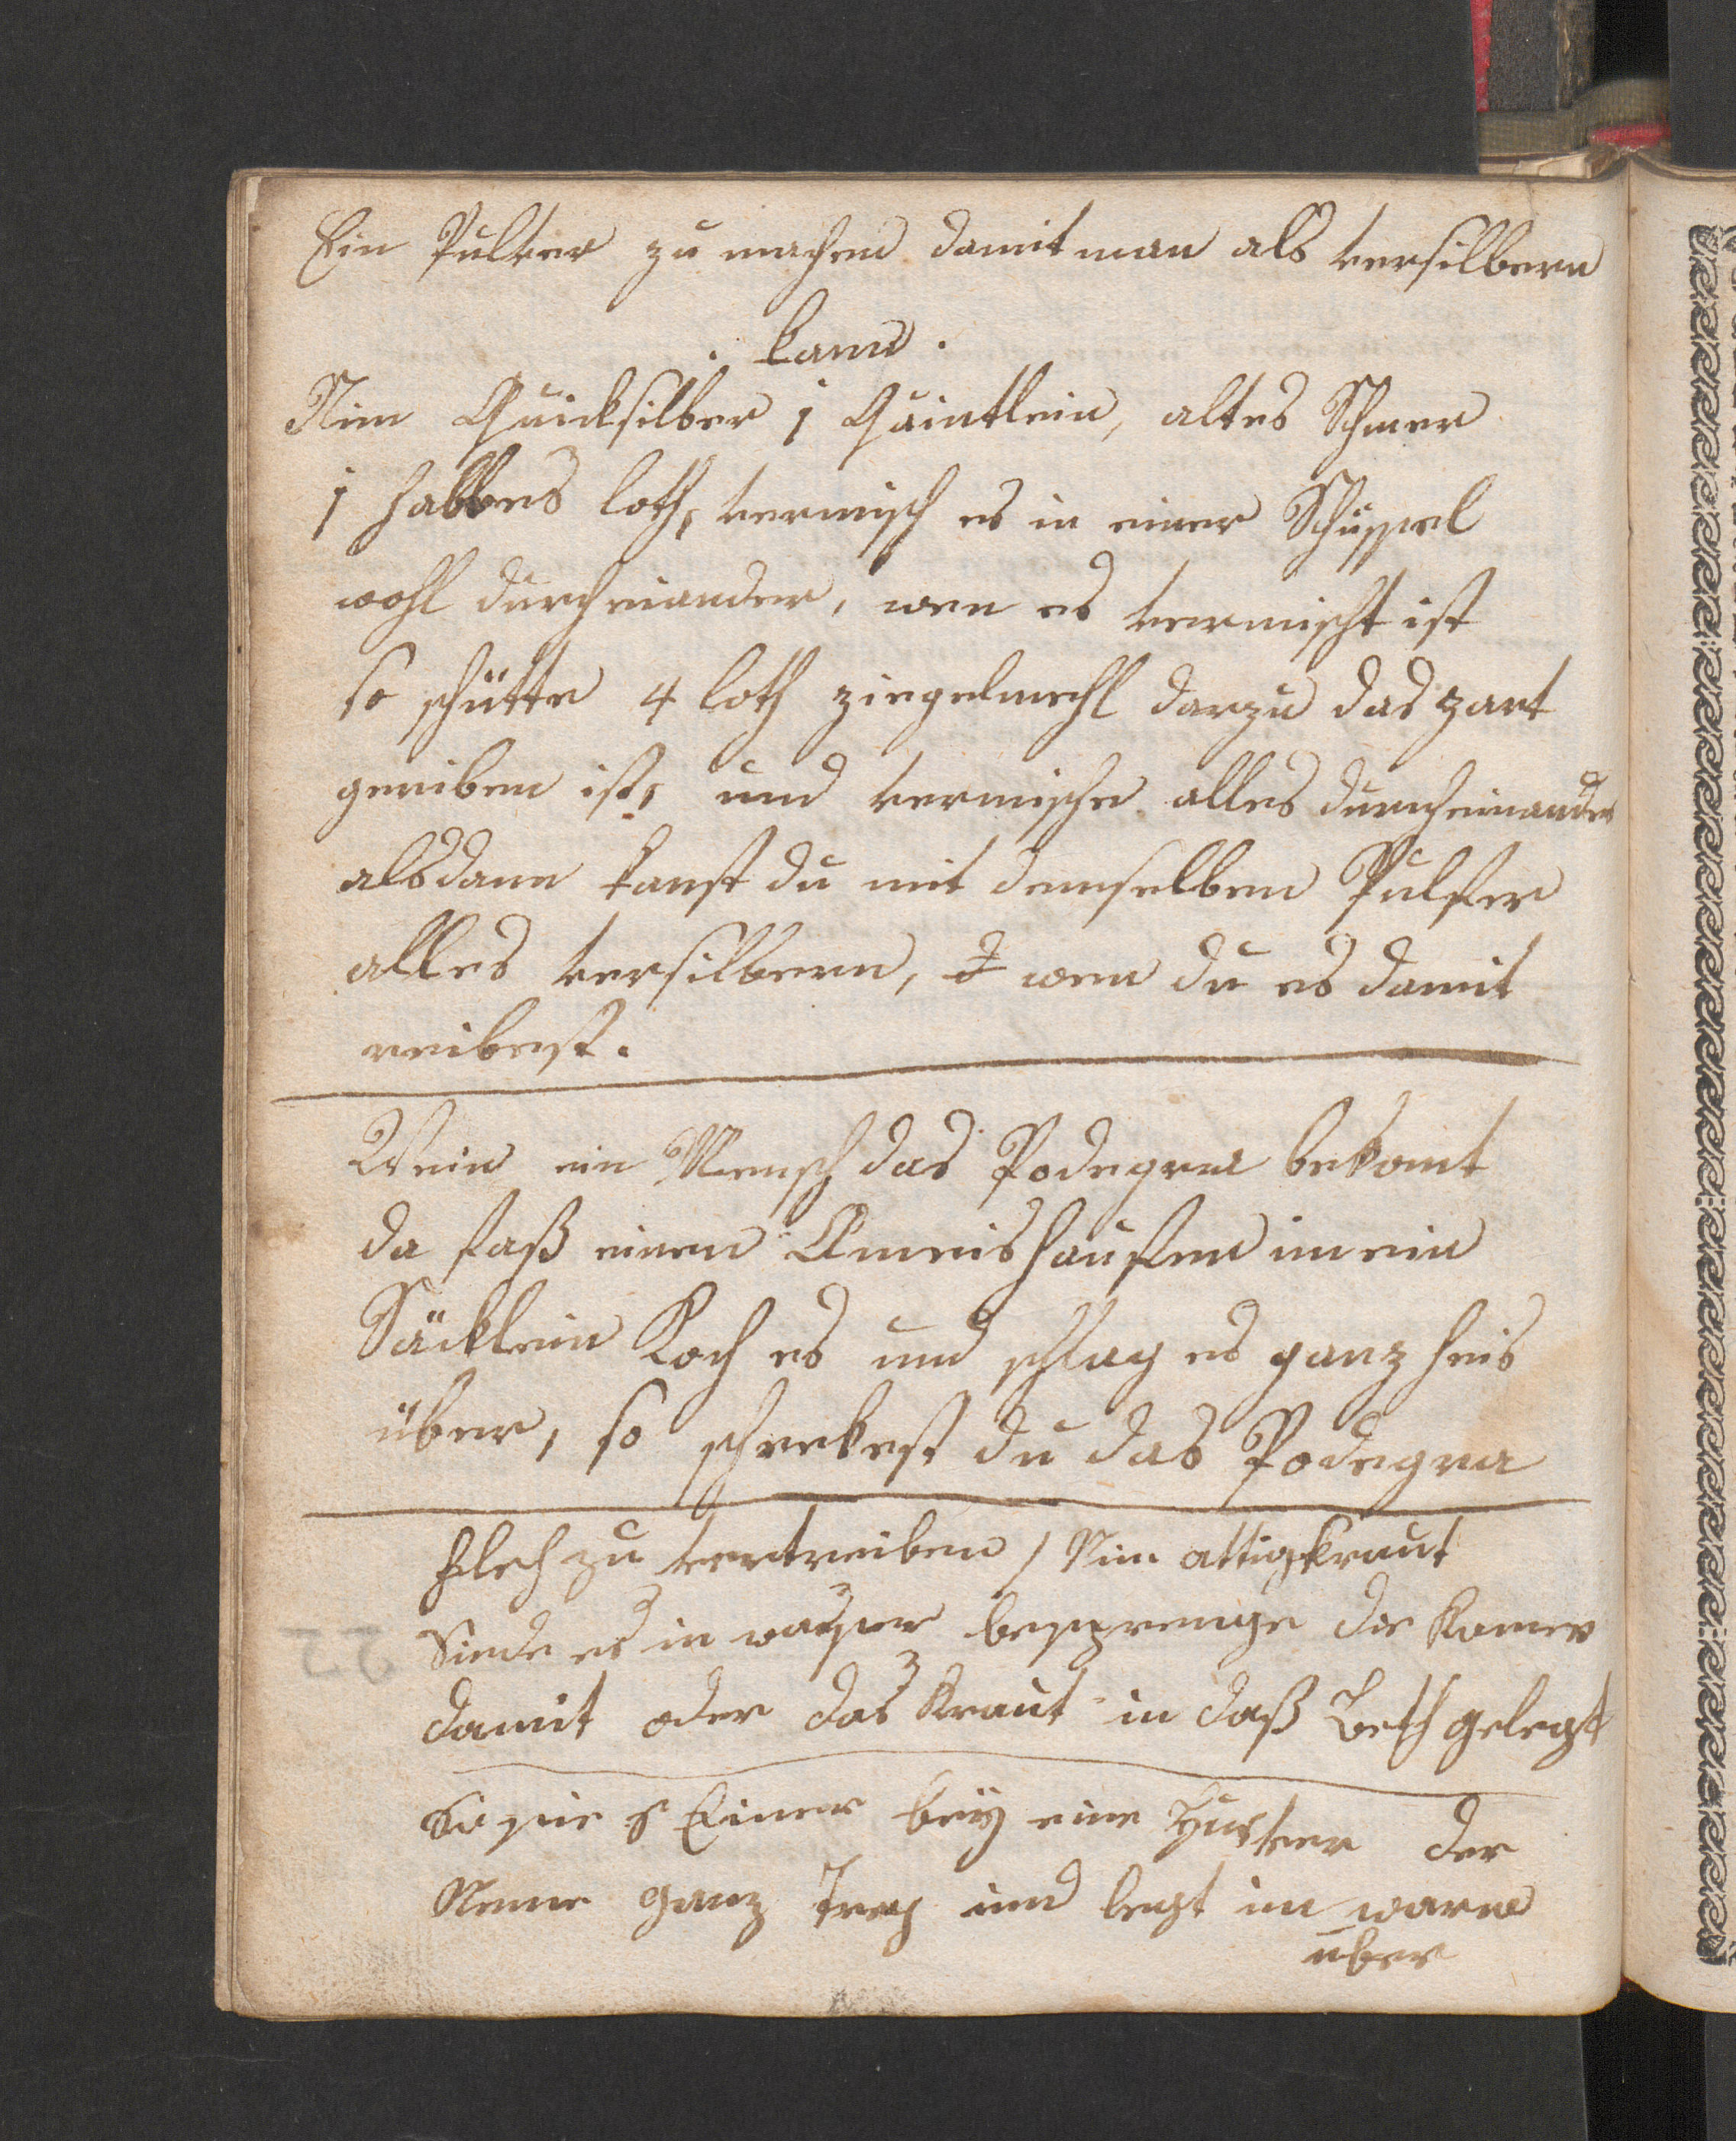 Ein Pulver zu machen damit man als versilbern
kann.
Nim Quicksilber 1 Quintlein, altes Schmer
1 halbes loth, vermisch es in einer Schüssel
wohl durcheinander, wen es vermischt ist
so schütte 4 loth ziegelmehl darzu das zart
geriben ist, und vermische alles durcheinander
alsdann kanst du mit demselben Pulfer
alles versilbern, wen du es damit
reibest.
Wenn ein Mensch das Podegra bekomt
da faß einen Ameishaufen in ein
Säcklein Koch es und schlag es ganz heis
über, so schrekest du das Podegra
Fleh zu vertreiben / Nim attigkraut
Siede es in wasser besprenge die Kamer
damit oder das Kraut in daß Beth gelegt
Einer bey eine der
Neme ganz und legt im warm
über